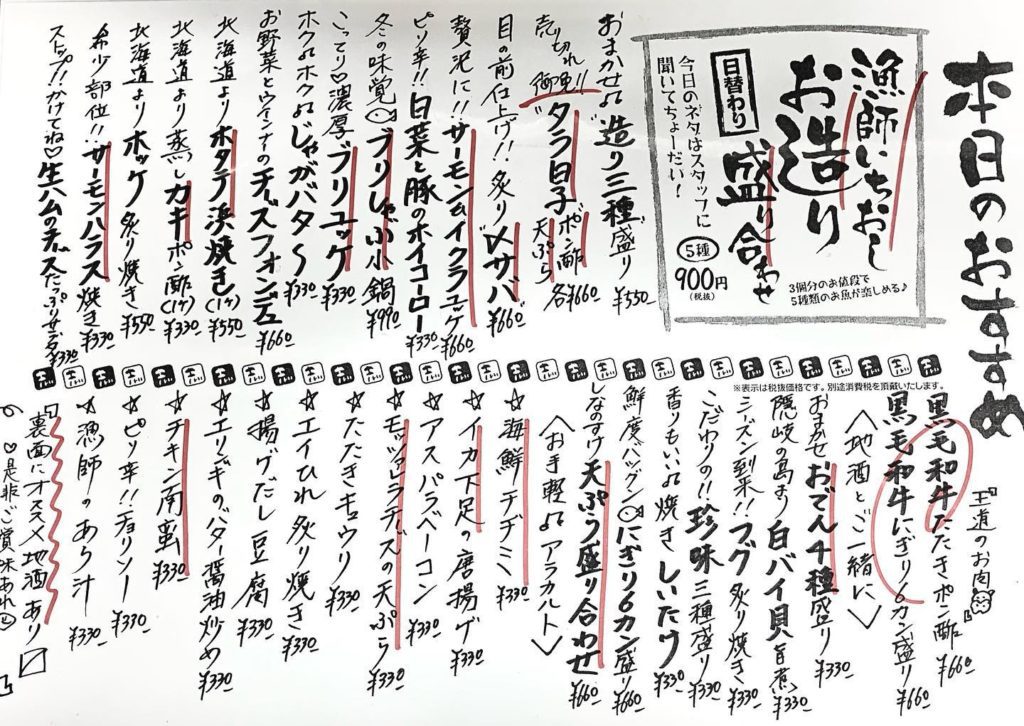 本日のおすすめ
漁師いちおし
お造り
日替わり
盛り合わせ
今日のネタはスタッフに
聞いてちょーだい！
5種
900円
(税抜)
3個分のお値段で
5種類のお魚が楽しめる♪
おまかせ♫造り三種盛り ¥550
売切れ御免!! タラ白子 ポン酢 天ぷら 各¥660
目の前仕上げ!! 炙り〆サバ ¥660
贅沢に!! サーモンとイクラユッケ ¥660
ピリ辛!! 白菜と豚のホイコーロー ¥330
冬の味覚 ブリしゃぶ小鍋 ¥990
こってり♡濃厚 ブリユッケ ¥330
ホク♫ホク♫じゃがバタ〜 ¥330
お野菜とウインナのチーズフォンデュ ¥660
北海道より ホタテ浜焼き(1ケ) ¥550
北海道より 蒸しカキポン酢(1ケ) ¥330
北海道より ホッケ炙り焼き ¥550
希少部位!! サーモンハラス焼き ¥330
ストップ!!かけてね♡ 生ハムのチーズたっぷりサラダ ¥330
※表示は税抜価格です。別途消費税を頂戴いたします。
王道のお肉
黒毛和牛たたきポン酢 ¥660
黒毛和牛にぎり6カン盛り ¥660
〈地酒とご一緒に〉
おまかせ おでん4種盛り ¥330
隠岐の島より 白バイ貝旨煮 ¥330
シーズン到来!! フグ炙り焼き ¥330
こだわりの!! 珍味三種盛り ¥330
香りもいい♫ 焼きしいたけ ¥330
鮮度バツグン にぎり6カン盛り ¥660
しなのすけ 天ぷら盛り合わせ ¥660
〈お手軽♫アラカルト〉
☆海鮮チヂミ ¥330
☆イカ下足の唐揚げ ¥330
☆アスパラベーコン ¥330
☆モッツァレラチーズの天ぷら ¥330
☆たたきキュウリ ¥330
☆エイひれ炙り焼き ¥330
☆揚げだし豆腐 ¥330
☆エリンギのバター醤油炒め ¥330
☆チキン南蛮 ¥330
☆ピリ辛!!チョリソー ¥330
☆漁師のあら汁 ¥330
裏面にオススメ地酒あり
♡是非ご賞味あれ